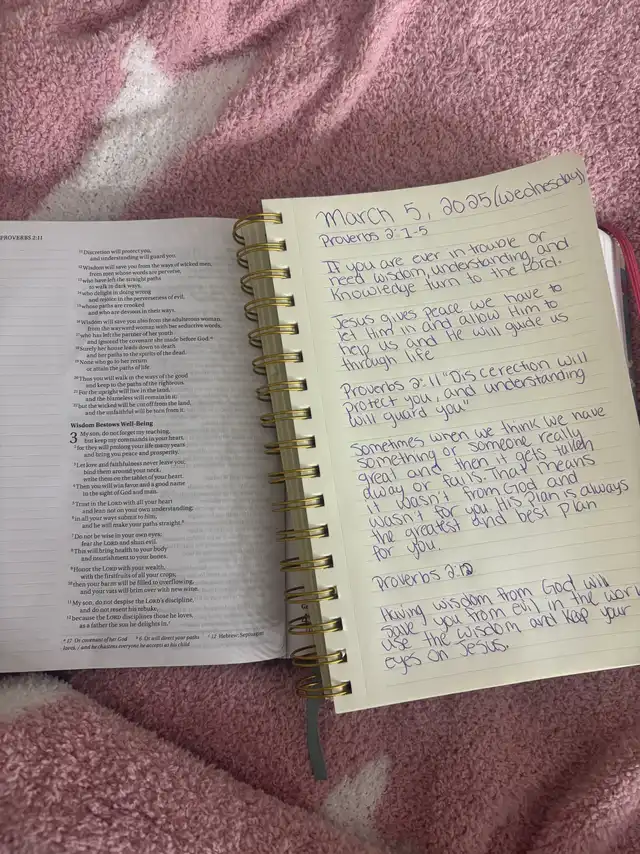 PROVERBS 2:11
11 Discretion will protect you,
and understanding will guard you.
12 Wisdom will save you from the ways of wicked men,
from men whose words are perverse,
13 who have left the straight paths
to walk in dark ways,
14 who delight in doing wrong
and rejoice in the perverseness of evil,
15 whose paths are crooked
and who are devious in their ways.
16 Wisdom will save you also from the adulterous woman,
from the wayward woman with her seductive words,
17 who has left the partner of her youth
and ignored the covenant she made before God.
18 Surely her house leads down to death
and her paths to the spirits of the dead.
19 None who go to her return
or attain the paths of life.
20 Thus you will walk in the ways of the good
and keep to the paths of the righteous.
21 For the upright will live in the land,
and the blameless will remain in it;
22 but the wicked will be cut off from the land,
and the unfaithful will be torn from it.
Wisdom Bestows Well-Being
3 My son, do not forget my teaching,
but keep my commands in your heart,
2 for they will prolong your life many years
and bring you peace and prosperity.
3 Let love and faithfulness never leave you;
bind them around your neck,
write them on the tablet of your heart.
4 Then you will win favor and a good name
in the sight of God and man.
5 Trust in the LORD with all your heart
and lean not on your own understanding;
6 in all your ways submit to him,
and he will make your paths straight.
7 Do not be wise in your own eyes;
fear the LORD and shun evil.
8 This will bring health to your body
and nourishment to your bones.
9 Honor the LORD with your wealth,
with the firstfruits of all your crops;
10 then your barns will be filled to overflowing,
and your vats will brim over with new wine.
11 My son, do not despise the LORD's discipline,
and do not resent his rebuke,
12 because the LORD disciplines those he loves,
as a father the son he delights in.
17 Or covenant of her God 6 Or will direct your paths 12 Hebrew; Septuagint
loves, / and he chastens everyone he accepts as his child
March 5, 2025 (Wednesday)
Proverbs 2:1-5
If you are ever in trouble or
need wisdom, understanding, and
knowledge turn to the Lord.
Jesus gives peace we have to
let Him in and allow Him to
help us and He will guide us
through life
Proverbs 2:11 "Discerection will
protect you, and understanding
will guard you"
Sometimes when we think we have
something or someone really
great and then it gets tuken
away or fails. That means
it wasn't from God and
wasn't for you. His Plan is always
the greatest and best plan
for you.
Proverbs 2:12
Having wisdom from God will
save you from evil in the
use the wisdom and keep your
eyes on Jesus.